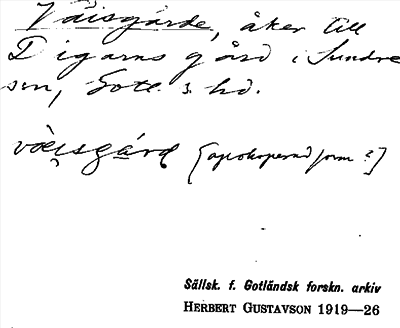 Väisgärde, åker till
Digrans gård i Sundre
sn, Gotl. s. hd.
väi̯sgárd [apokoperad form?]
Sällsk. f. Gotländsk forskn. arkiv
HERBERT GUSTAVSON 1919—26